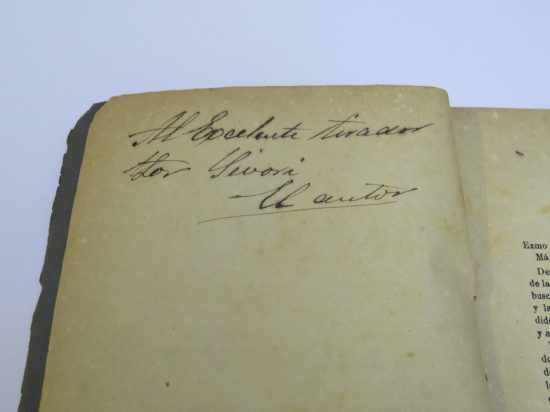 Al Excelente tirador
Sor Sivori
El autor
Exmo
Má
De
de la
busc
y la
dido
y a
do
de